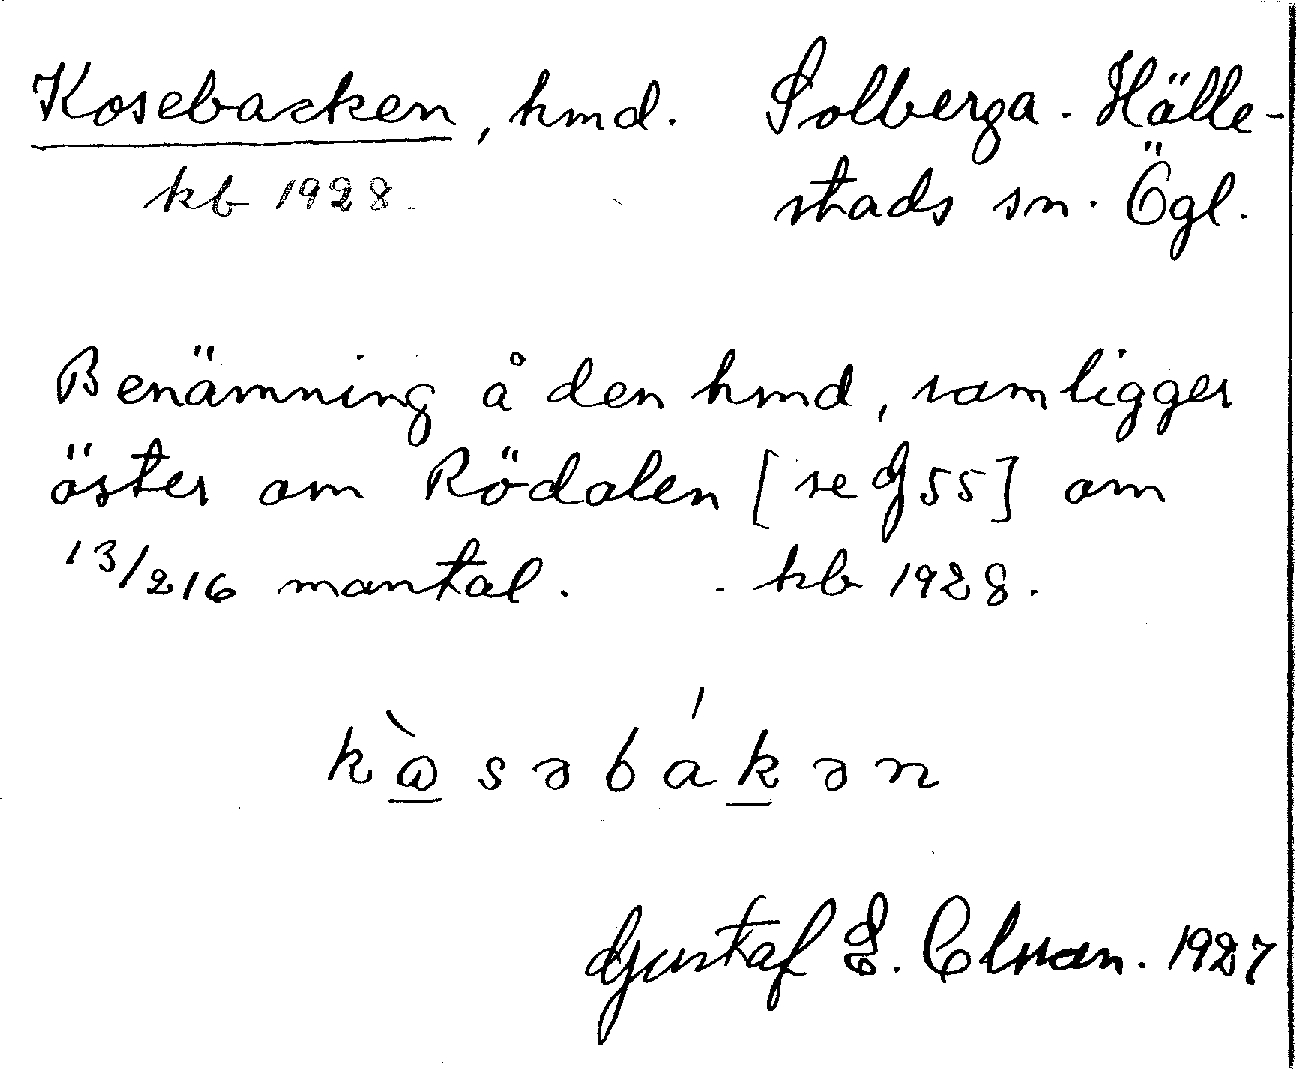 Kosebacken, hmd. Solberga. Hälle-
kb 1928. stads sn. Ögl.
Benämning å den hmd, som ligger
öster om Rödalen [se G 55] om
13/216 mantal. kb 1928.
kɷ̀səbákən
Gustaf E. Clman. 1927